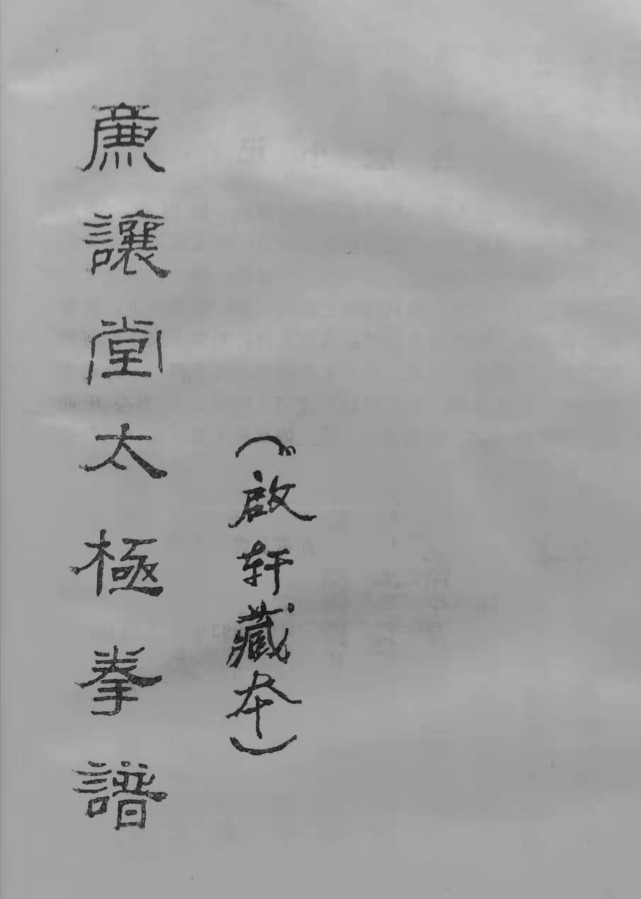 廉讓堂太極拳譜
（啟轩藏本）